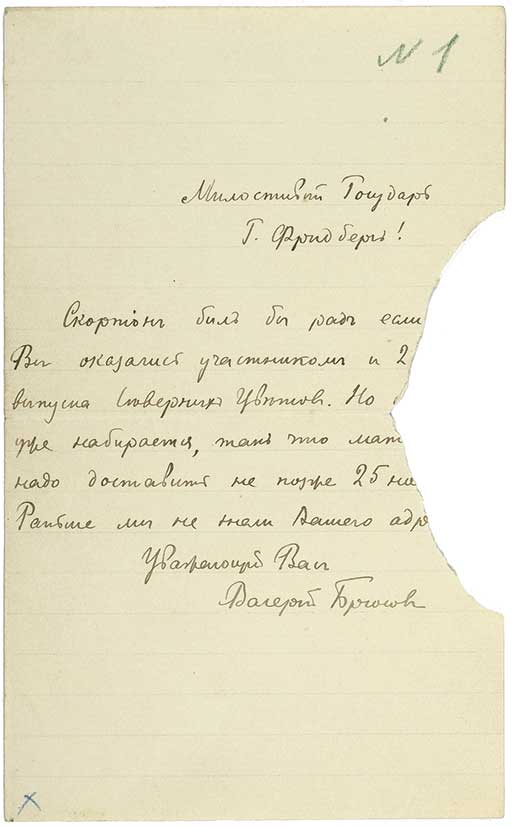 N 1
Милостивый Государь
Г. Фридберг!
Скорпіонъ былъ бы радъ если
Вы оказались участникомъ и 2
выпуска Сѣверныхъ Цвѣтов. Но
уже набирается, такъ что мат
надо доставить не позже 25 но
Раньше мы не знали Вашего адр
Уважающій Васъ
Валерій Брюсовъ